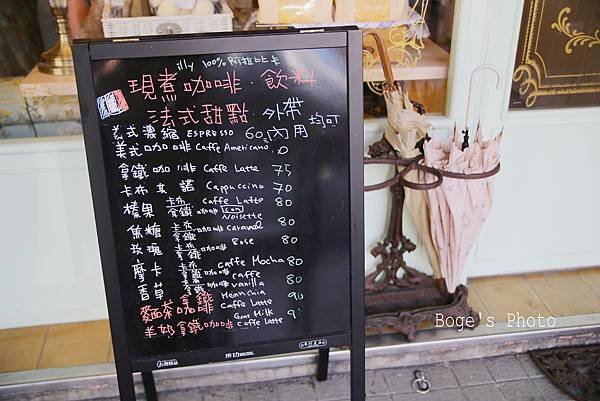 illy 100% 阿拉比卡
現煮咖啡·飲料
法式甜點·外帶
內用 均可
義式濃縮 ESPRESSO 60
美式咖啡 Caffe Americano
拿鐵咖啡 Caffe Latte 75
卡布其諾 Cappuccino 70
榛果 卡布 拿鐵 咖啡 Caffe Latte Noisette 80
焦糖 卡布 拿鐵 咖啡 Caramel 80
玫瑰 卡布 拿鐵 咖啡 Rose 80
摩卡 卡布 拿鐵 咖啡 Caffe Mocha 80
香草 卡布 拿鐵 咖啡 Caffe Vanilla 80
麵茶拿鐵 Mennchia Caffe Latte 90
羊奶拿鐵咖啡 Goat Milk Caffe Latte
Boge's Photo